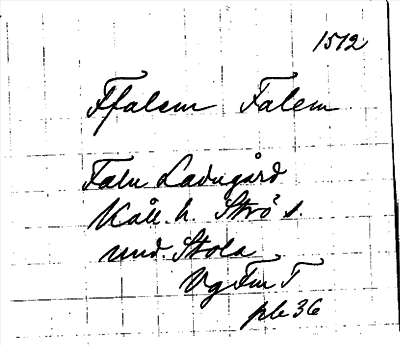 1512
Ffalem Falem
Falu Ladugård
Kåll. h. Strö s.
und. Stola
Vg Fm T
plc 36